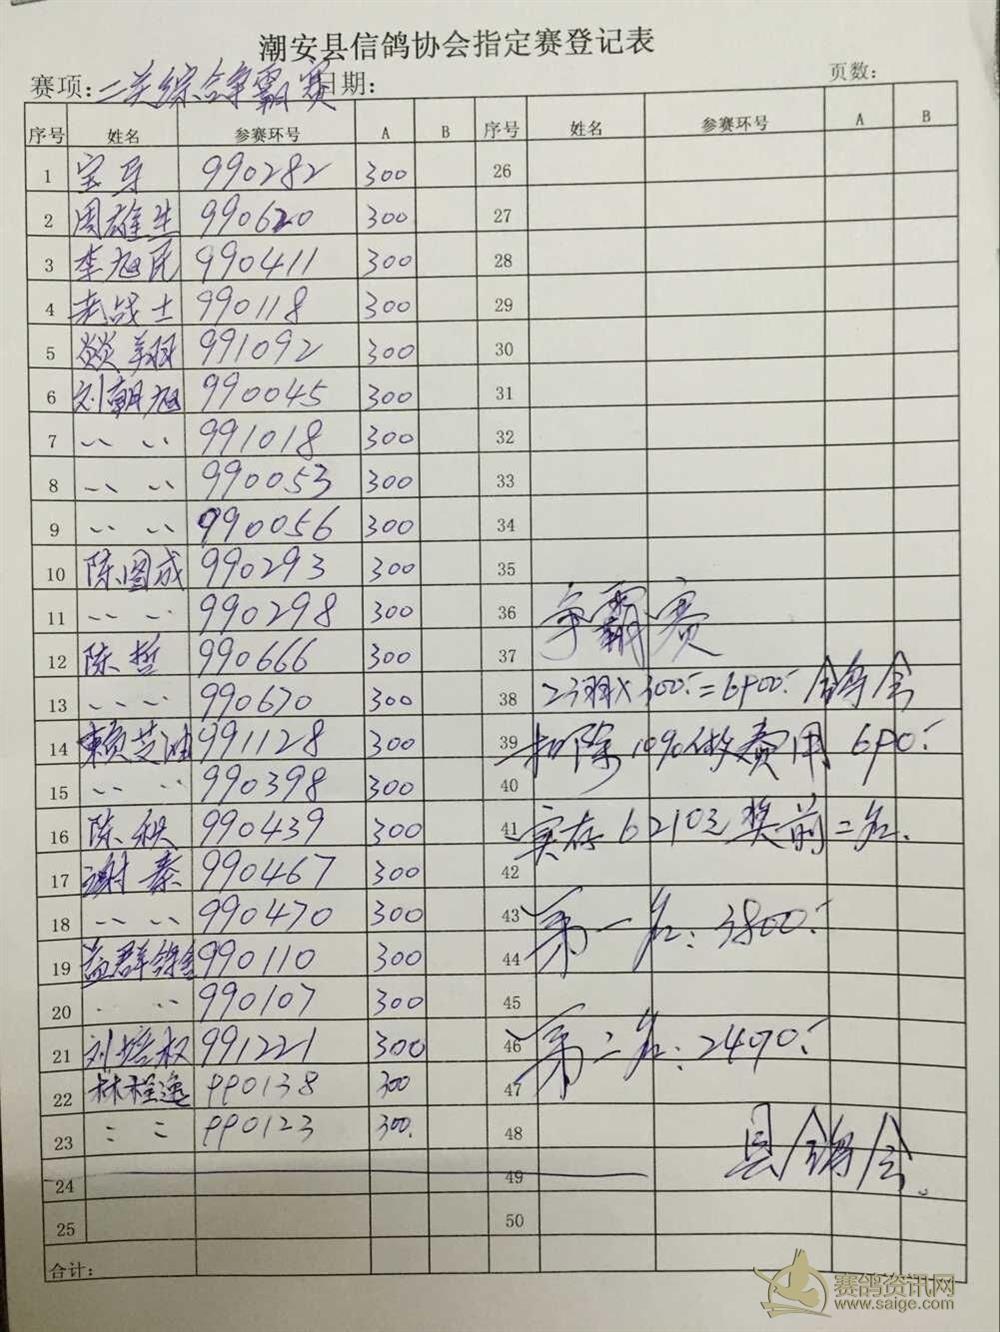 潮安县信鸽协会指定赛登记表
赛项:二关综合争霸赛 日期: 页数:
序号 姓名 参赛环号 A B 序号 姓名 参赛环号 A B
1 宝马 990282 300 26
2 周雄生 990620 300 27
3 李旭民 990411 300 28
4 老战士 990118 300 29
5 焱翔 991092 300 30
6 刘朝旭 990045 300 31
7 〃 〃 991018 300 32
8 〃 〃 990053 300 33
9 〃 〃 990056 300 34
10 陈图成 990293 300 35
11 〃 〃 990298 300 36 争霸赛
12 陈哲 990666 300 37
13 〃 〃 990670 300 38 23羽×300.=6900. 鸽会
14 赖芝 991128 300 39 扣除10%做费用 690.
15 〃 〃 990398 300 40
16 陈秋 990439 300 41 实存6210元奖前二名.
17 谢泰 990467 300 42
18 〃 〃 990470 300 43 第一名:3800.
19 益群鸽舍 990110 300 44
20 〃 〃 990107 300 45
21 刘培权 991221 300 46 第二名:2410.
22 林程逸 990138 300 47
23 〃 〃 990123 300. 48 县鸽会.
24 49
25 50
合计:
赛鸽资讯网
www.saige.com